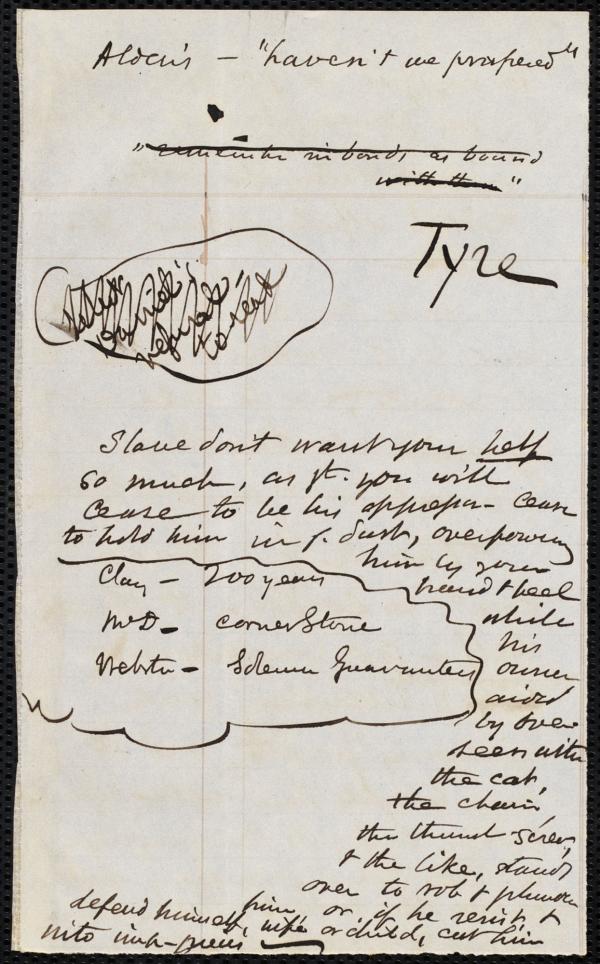 Alden's — "haven't we prospered"
"remember in bonds as bound
with them"
Tyre
refusal
Slave don't want your help
so much, as yt. you will
cease to be his oppressor — cease
to hold him in ye. dust, overpowering
him by your
hand & heel
while
his
owner
aided
by over
seers with
the cat,
the chain,
the thumb-screw,
& the like, stands
over to rob & plunder
him or, if he resist, &
defend himself, wife or child, cut him
into
Clay — 200 years
McD — corner Stone
Webster — Solemn Guarantees